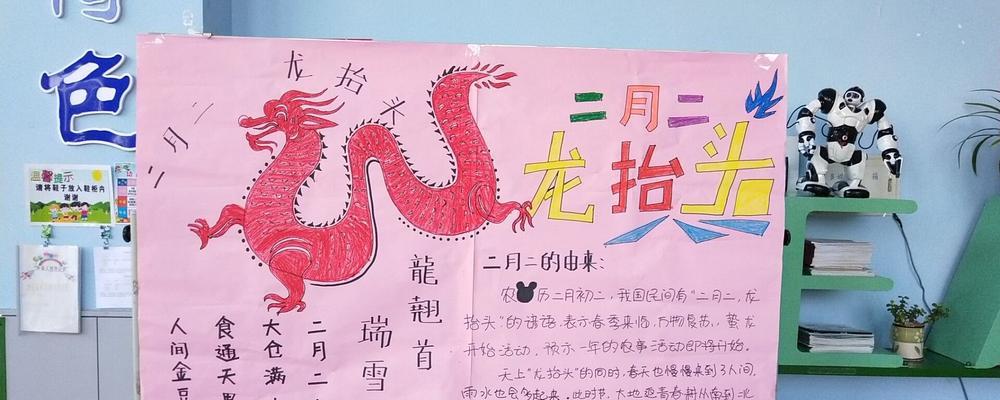 色
温馨提示
请将鞋子放入鞋柜内
谢谢
二月二
龙抬头
二月二
龙抬头
龍翹首
瑞雪
二月二
大仓满
食通天
人间金豆
二月二的由来:
农历二月初二，我国民间有“二月二，龙
抬头”的谚语，表示春季来临，万物复苏，蛰龙
开始活动，预示一年的农事活动即将开始。
天上“龙抬头”的同时，春天也慢慢来到了人间，
雨水也会多起来，此时节，大地返青春耕从南到北